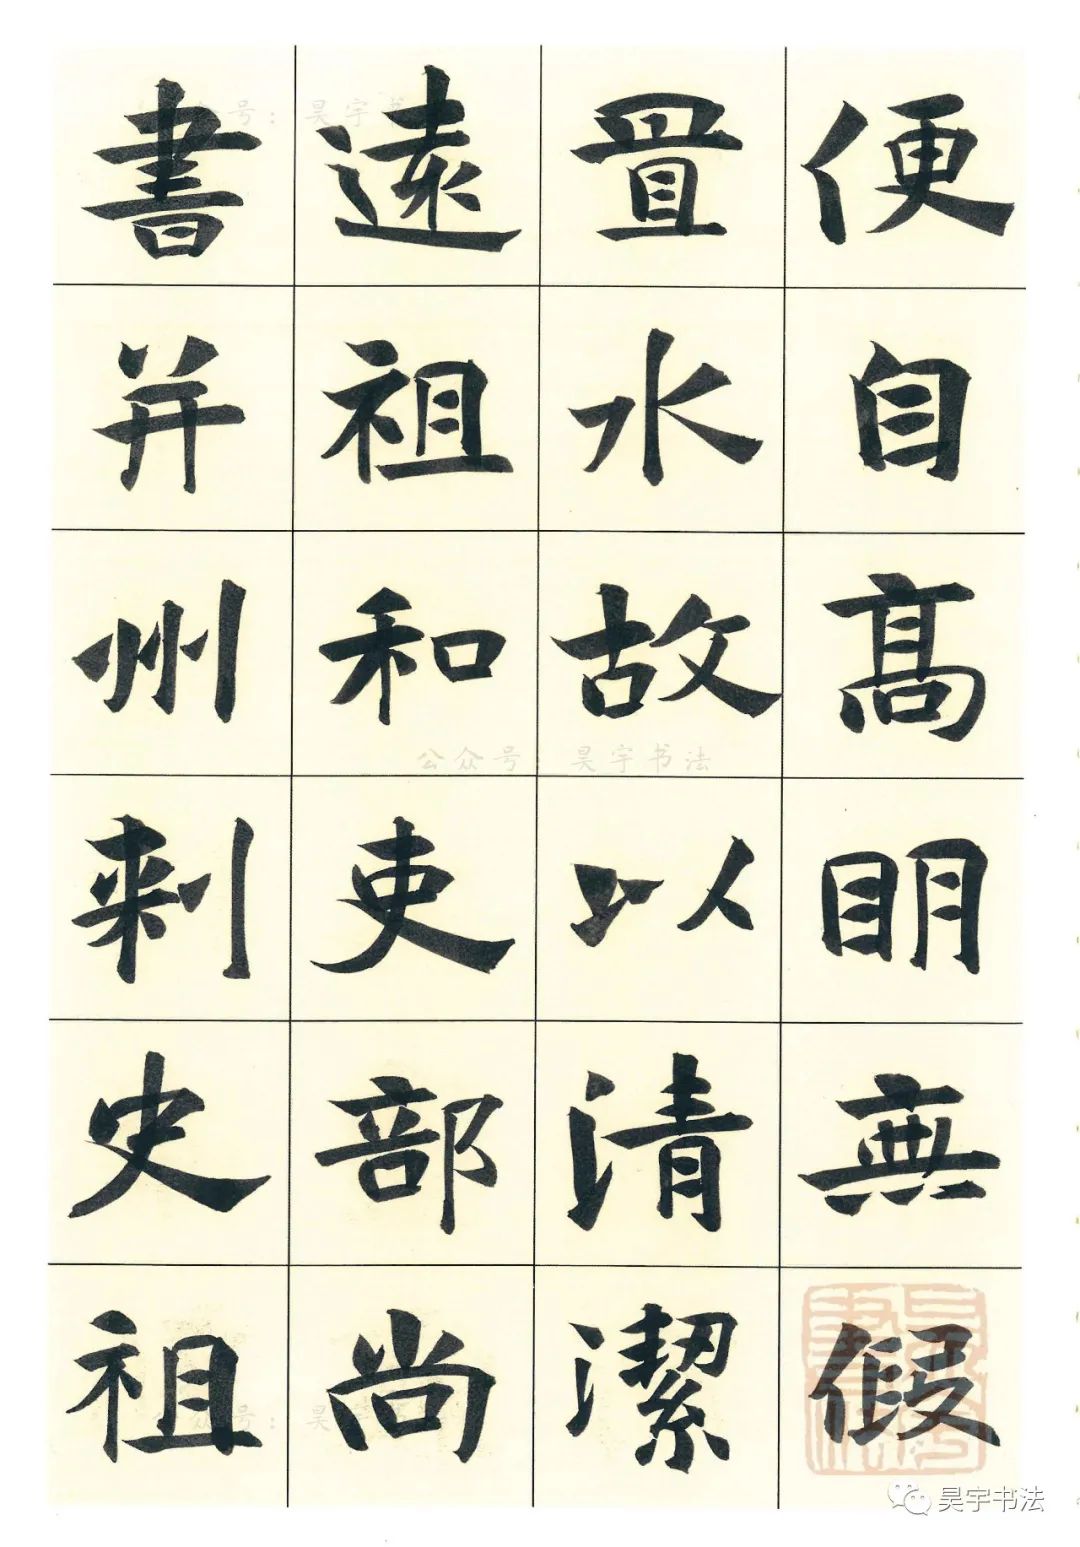 便自髙眀無假
置水故以清潔
遠祖和吏部尚
書并州刺史祖
公众号：昊宇书法
昊宇书法